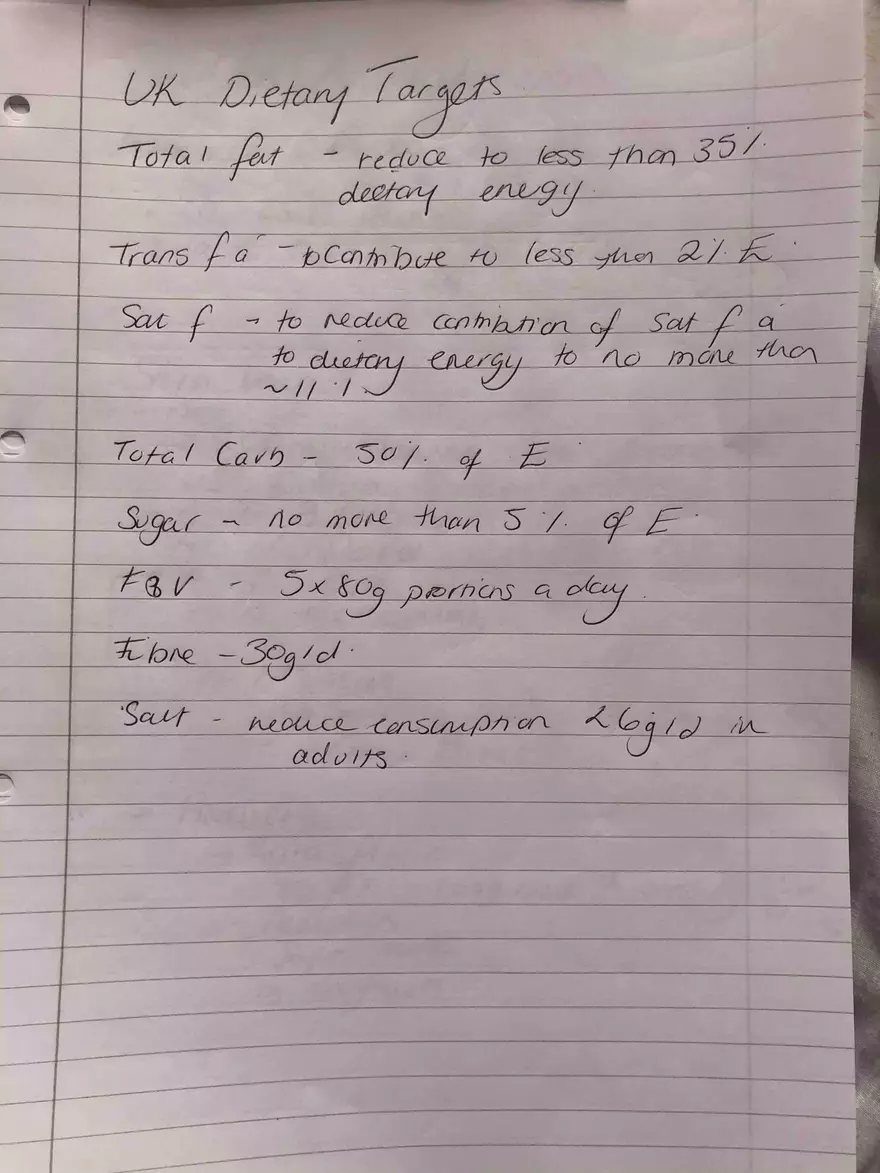 UK Dietary Targets
Total fat - reduce to less than 35%
deetary energy.
Trans f a - Contribute to less then 2% E
Sat f - to reduce contribution of Sat f a
to dietary energy to no more than
~11%
Total Carb - 50% of E
Sugar - no more than 5% of E
F&V - 5x80g portions a day.
Fibre - 30g/d.
Salt - reduce consumption <6g/d in
adults.